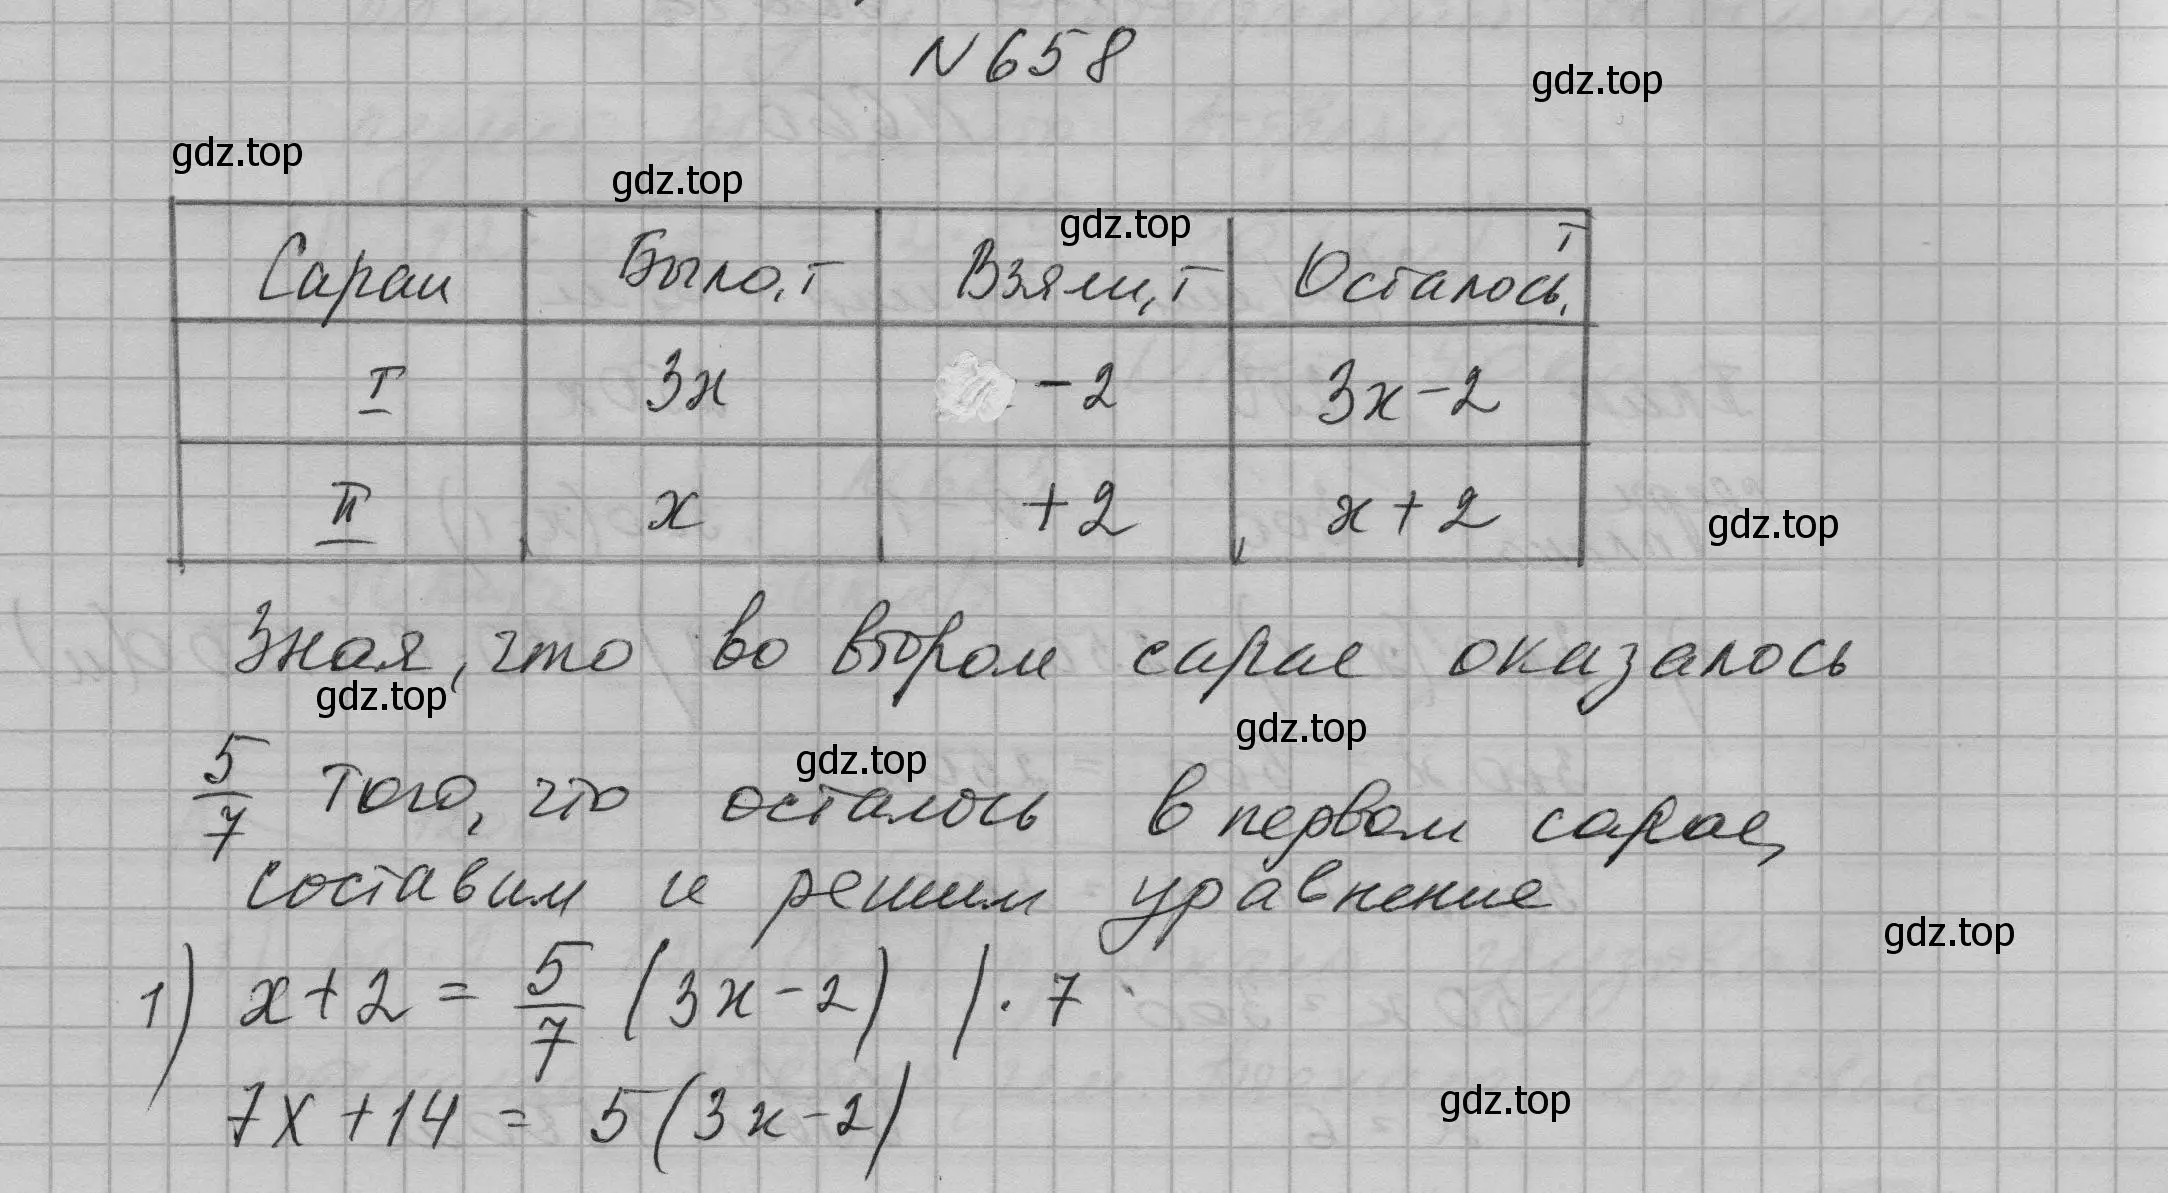 N 658
gdz.top
gdz.top
gdz.top
gdz.top
Сараи Было, т Взяли, т Осталось, т
I 3x - 2 3x - 2
II x + 2 x + 2
gdz.top
Зная, что во втором сарае оказалось
gdz.top
gdz.top
gdz.top
5/7 того, что осталось в первом сарае,
составим и решим уравнение
gdz.top
1) x + 2 = 5/7 (3x - 2) | · 7
gdz.top
7x + 14 = 5 (3x - 2)